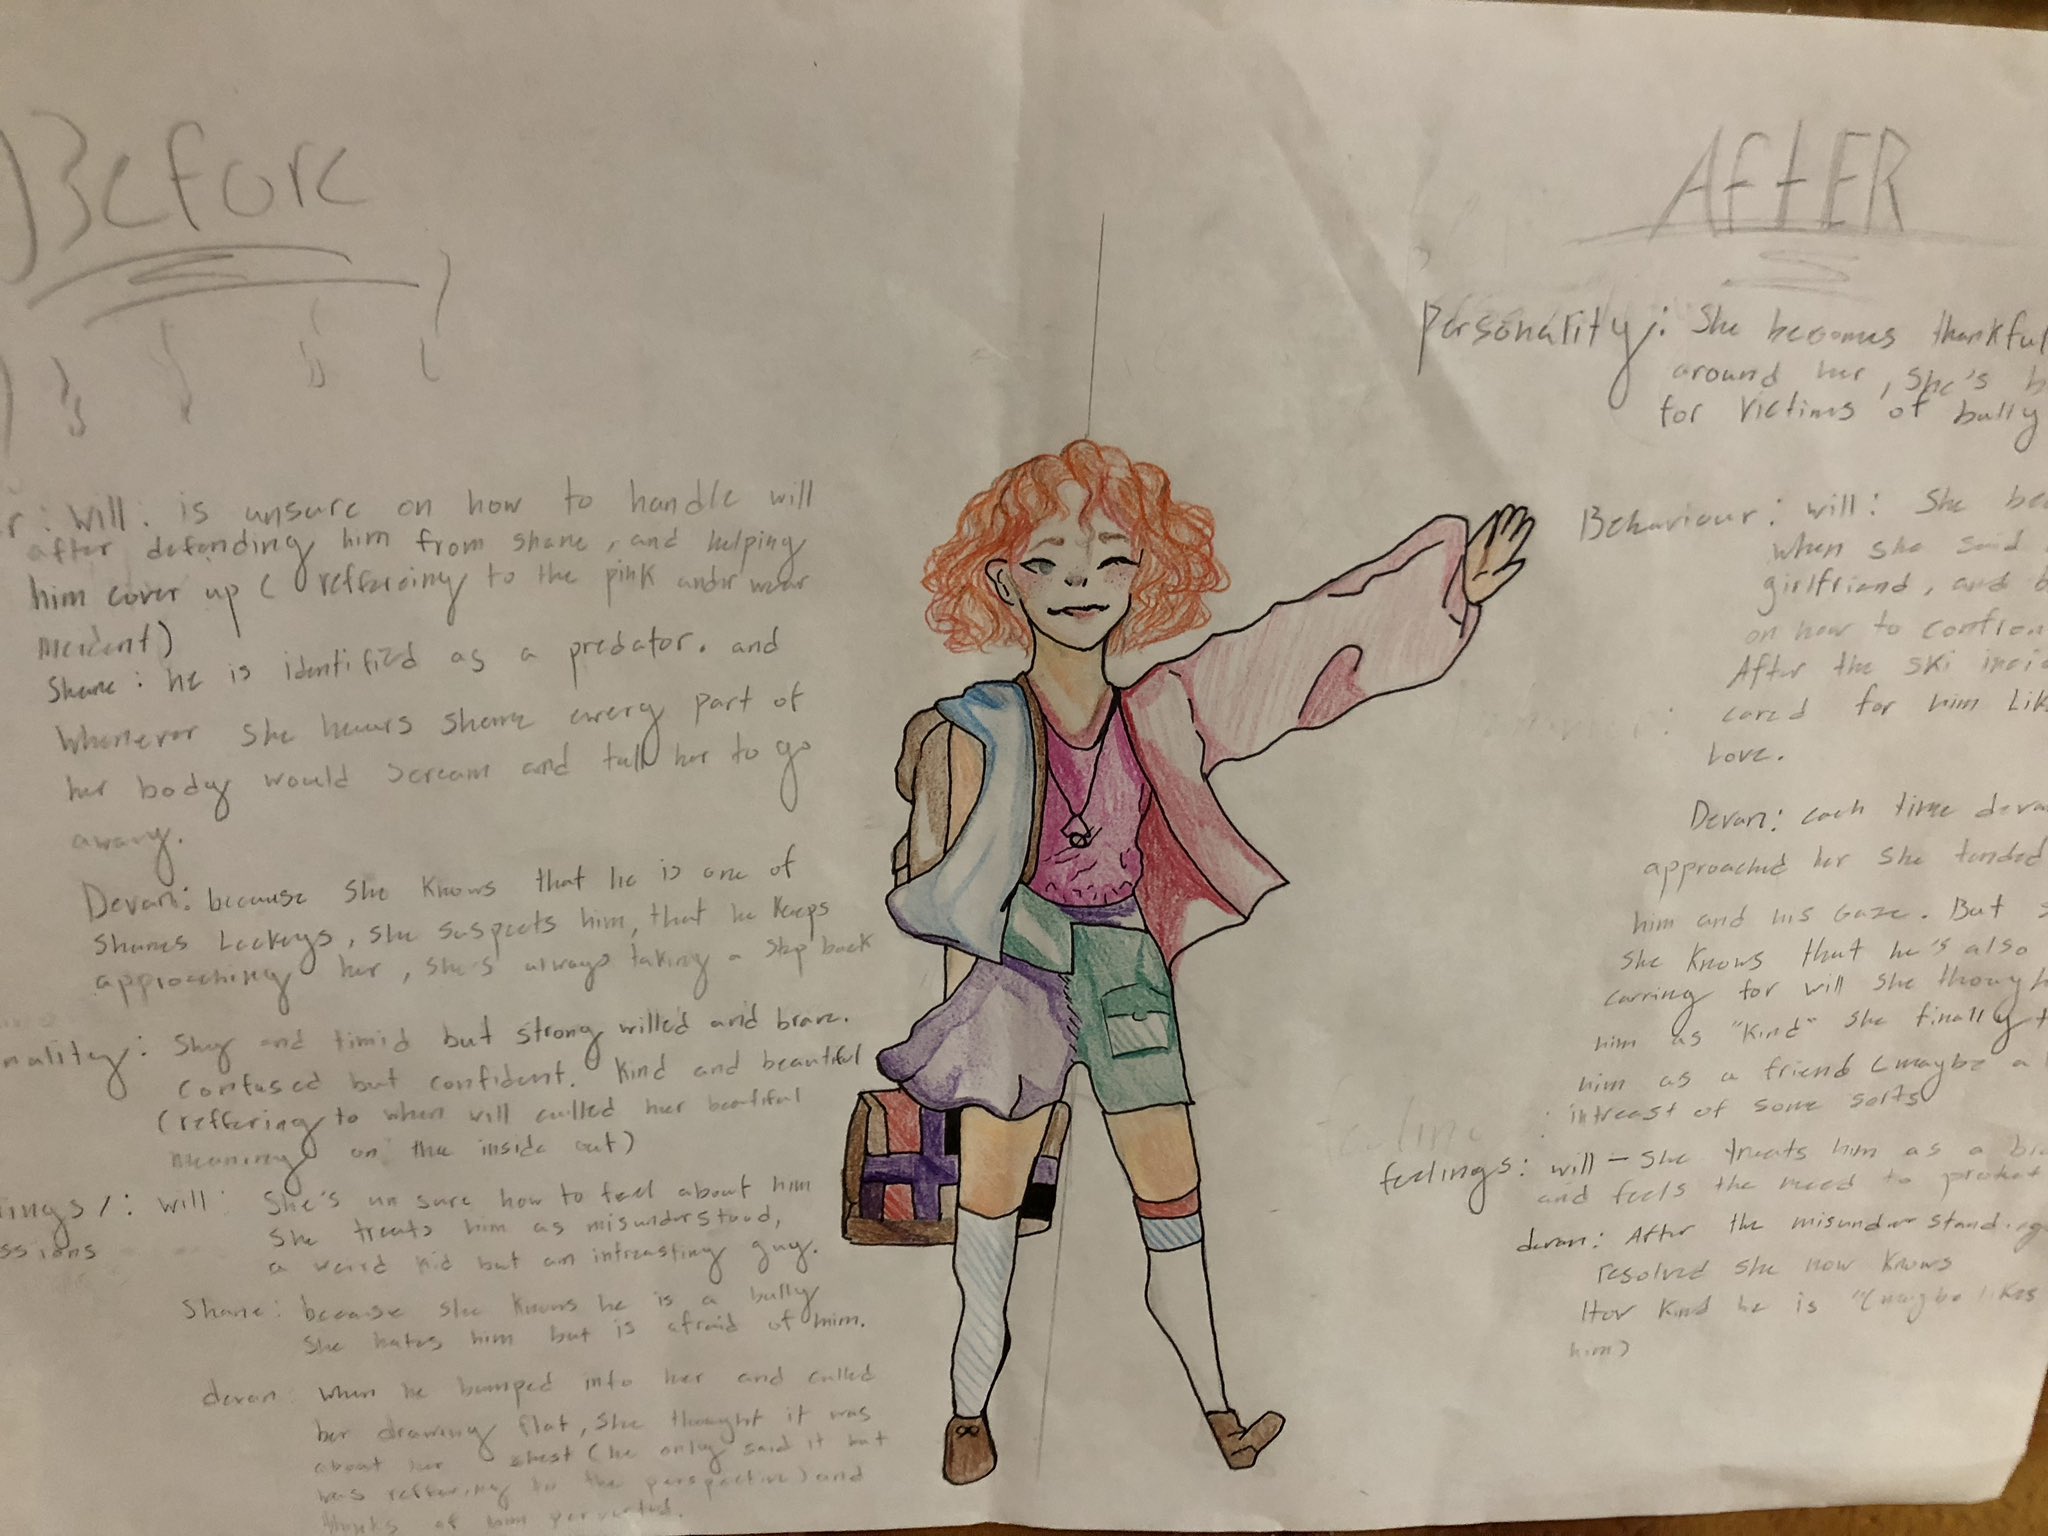 Before
r: Will: is unsure on how to handle will
after defending him from shane, and helping
him cover up ( reffereing to the pink under wear
incident)
Shane: he is identifizd as a predator. and
Whenever she hears shane every part of
her body would scream and tell her to go
away.
Devan: because she knows that he is one of
shanes Lackeys, she suspects him, that he keeps
approaching her, she's always taking a step back
nality: Shy and timid but strong willed and brave.
confused but confident. Kind and beautiful
(reffering to when will called her beautiful
meaning on the inside out)
ings/: will: She's un sure how to feel about him
ssions She treats him as misunderstood,
a weird kid but an intreasting guy.
Shane: because she knows he is a bully
She hates him but is afraid of him.
devan: when he bumped into her and called
her drawing flat, she thought it was
about her chest (he only said it but
was reffering to the perspective) and
thinks of him perverted.
AftER
Personality: She becomes thankful
around her, she's h
for victims of bully
Behaviour: will: She bec
when she said
girlfriend, and b
on how to confron
After the ski inci
cared for him Lik
Love.
Devan: each time deva
approached her she tended
him and his Gaze. But s
she knows that he's also
carring for will she though
him as "Kind" she finally t
him as a friend (maybe a
intreast of some sorts
feelings: will - She treats him as a br
and feels the need to protet
devan: After the misunderstanding
resolved she now knows
How kind he is "(maybe likes
him)